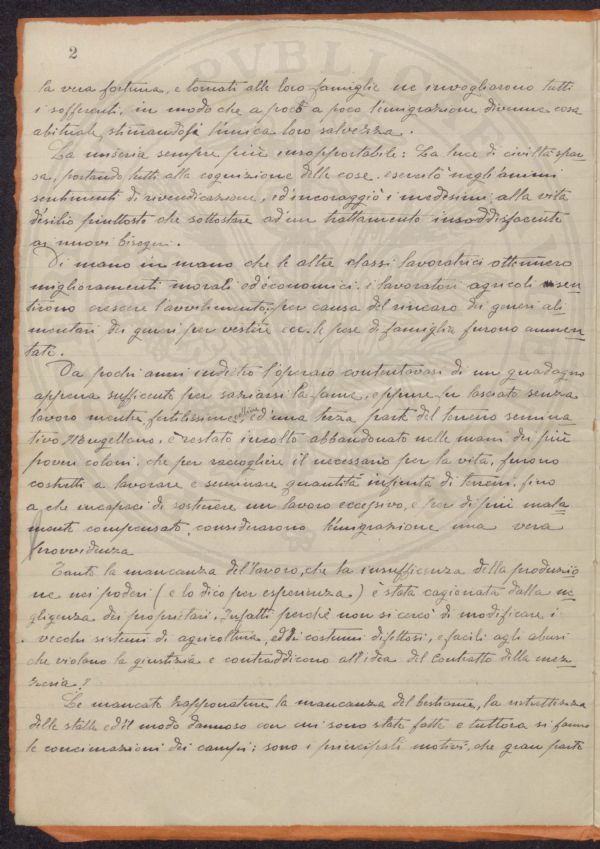 2
la vera fortuna, e tornati alle loro famiglie ne invogliarono tutti
i sofferenti, in modo che a poco a poco l'emigrazione divenne cosa
abituale stimandosi l'unica loro salvezza.
La miseria sempre più insopportabile: La luce di civiltà spar=
sa, portando tutti alla cognizione delle cose, esercitò negli animi
sentimenti di rivendicazione, ed incoraggiò i medesimi alla vita
d'esilio piuttosto che sottostare ad un trattamento insoddisfacente
ai nuovi bisogni.
Di mano in mano che le altre classi lavoratrici ottennero
miglioramenti morali ed economici, i lavoratori agricoli sen=
tirono crescere l'avvilimento, per causa del rincaro dei generi ali
mentari dei generi per vestire ecc. le spese di famiglia furono aumen=
tate.
Da pochi anni indietro l'operaio contentavasi di un guadagno
appena sufficente per saziarsi la fame, eppure fu lasciato senza
lavoro mentre fertilissime colline ed una terza parte del terreno semina
tivo Mugellano, è restato incolto abbandonato nelle mani dei più
poveri coloni, che per raccogliere il necessario per la vita, furono
costretti a lavorare e seminare quantità infinite di terreni, fino
a che incapaci di sostenere un lavoro eccessivo, e per di più mala
mente compensato, considerarono l'emigrazione una vera
Provvidenza
Tanto la mancanza del lavoro, che la insufficenza della produzio
ne nei poderi (e lo dico per esperienza) è stata cagionata dalla ne
gligenza dei proprietari. Infatti perchè non si cercò di modificare i
vecchi sistemi di agricoltura, ed i costumi difettosi, e facili agli abusi
che violano la giustizia e contraddicono all'idea del contratto della mez=
zeria?
Le mancate trapponature la mancanza del bestiame, la ristrettezza
delle stalle ed il modo dannoso con cui sono state fatte e tuttora si fanno
le concimazioni dei campi; sono i principali motivi, che gran parte